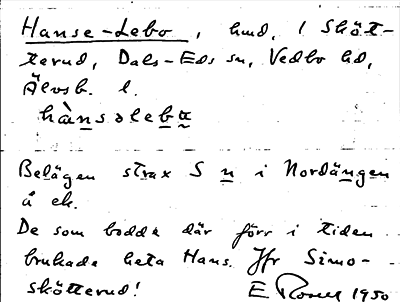 Hanse-Lebo, hmd, i Sköt-
terud, Dals-Eds sn, Vedbo hd,
Älvsb. l.
hànsəleba
Belägen strax S n i Nordängen
å ek.
De som bodde där förr i tiden
brukade heta Hans. Jfr Simo-
skötterud! E Rosell 1950